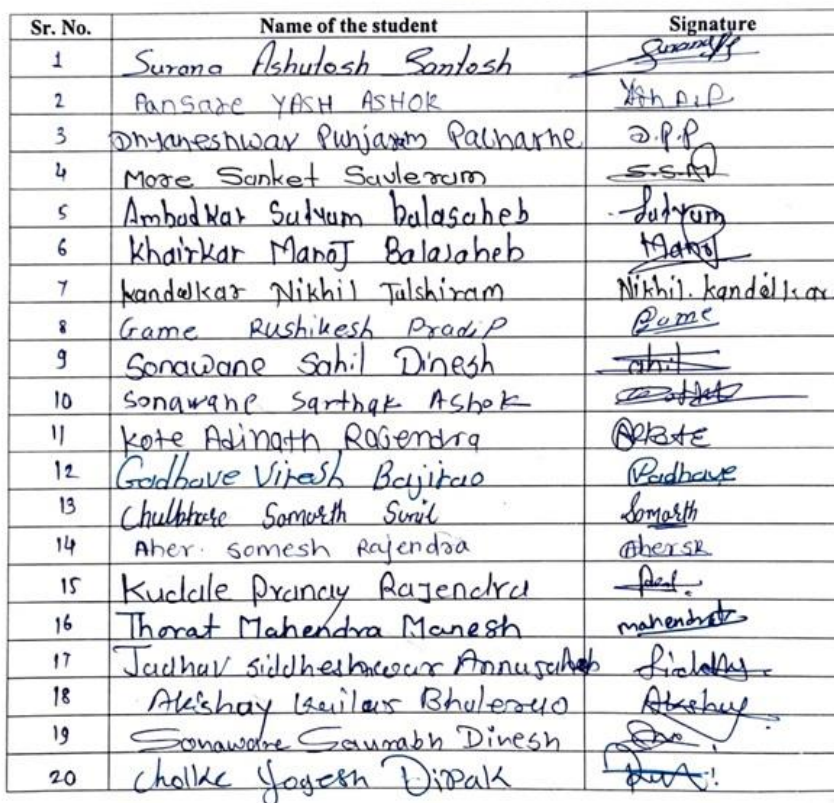 Sr. No. Name of the student Signature
1 Surana Ashutosh Santosh
2 Pansare YASH ASHOK Yash A.P
3 Dnyaneshwar Punjaram Pacharne D.P.P
4 More Sanket Savleram S.S.M
5 Ambadkar Satyam balasaheb Satyam
6 Khairkar Manoj Balasaheb Manoj
7 kandalkar Nikhil Tulshiram Nikhil. kandalkar
8 Game Rushikesh Pradip Game
9 Sonawane Sahil Dinesh
10 Sonawane Sarthak Ashok
11 Kote Adinath Rajendra
12 Gadhave Viresh Bajirao Gadhave
13 Samarth Sunil Samarth
14 Aher. Somesh Rajendra Ahersr
15 Kudale Pranay Rajendra
16 Thorat Mahendra Manesh mahendra
17 Jadhav siddheshwar Annasaheb
18 Akshay Kailas Bhalerao Akshay
19 Sonawane Saurabh Dinesh
20 Cholke Yogesh Dipak